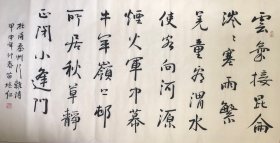 雲氣接昆侖
涔々塞雨繁
羌童看渭水
使客向河源
煙火軍中幕
牛羊嶺上邨
所居秋草靜
正閉小蓬門
杜甫秦州雜詩
甲午年仲春